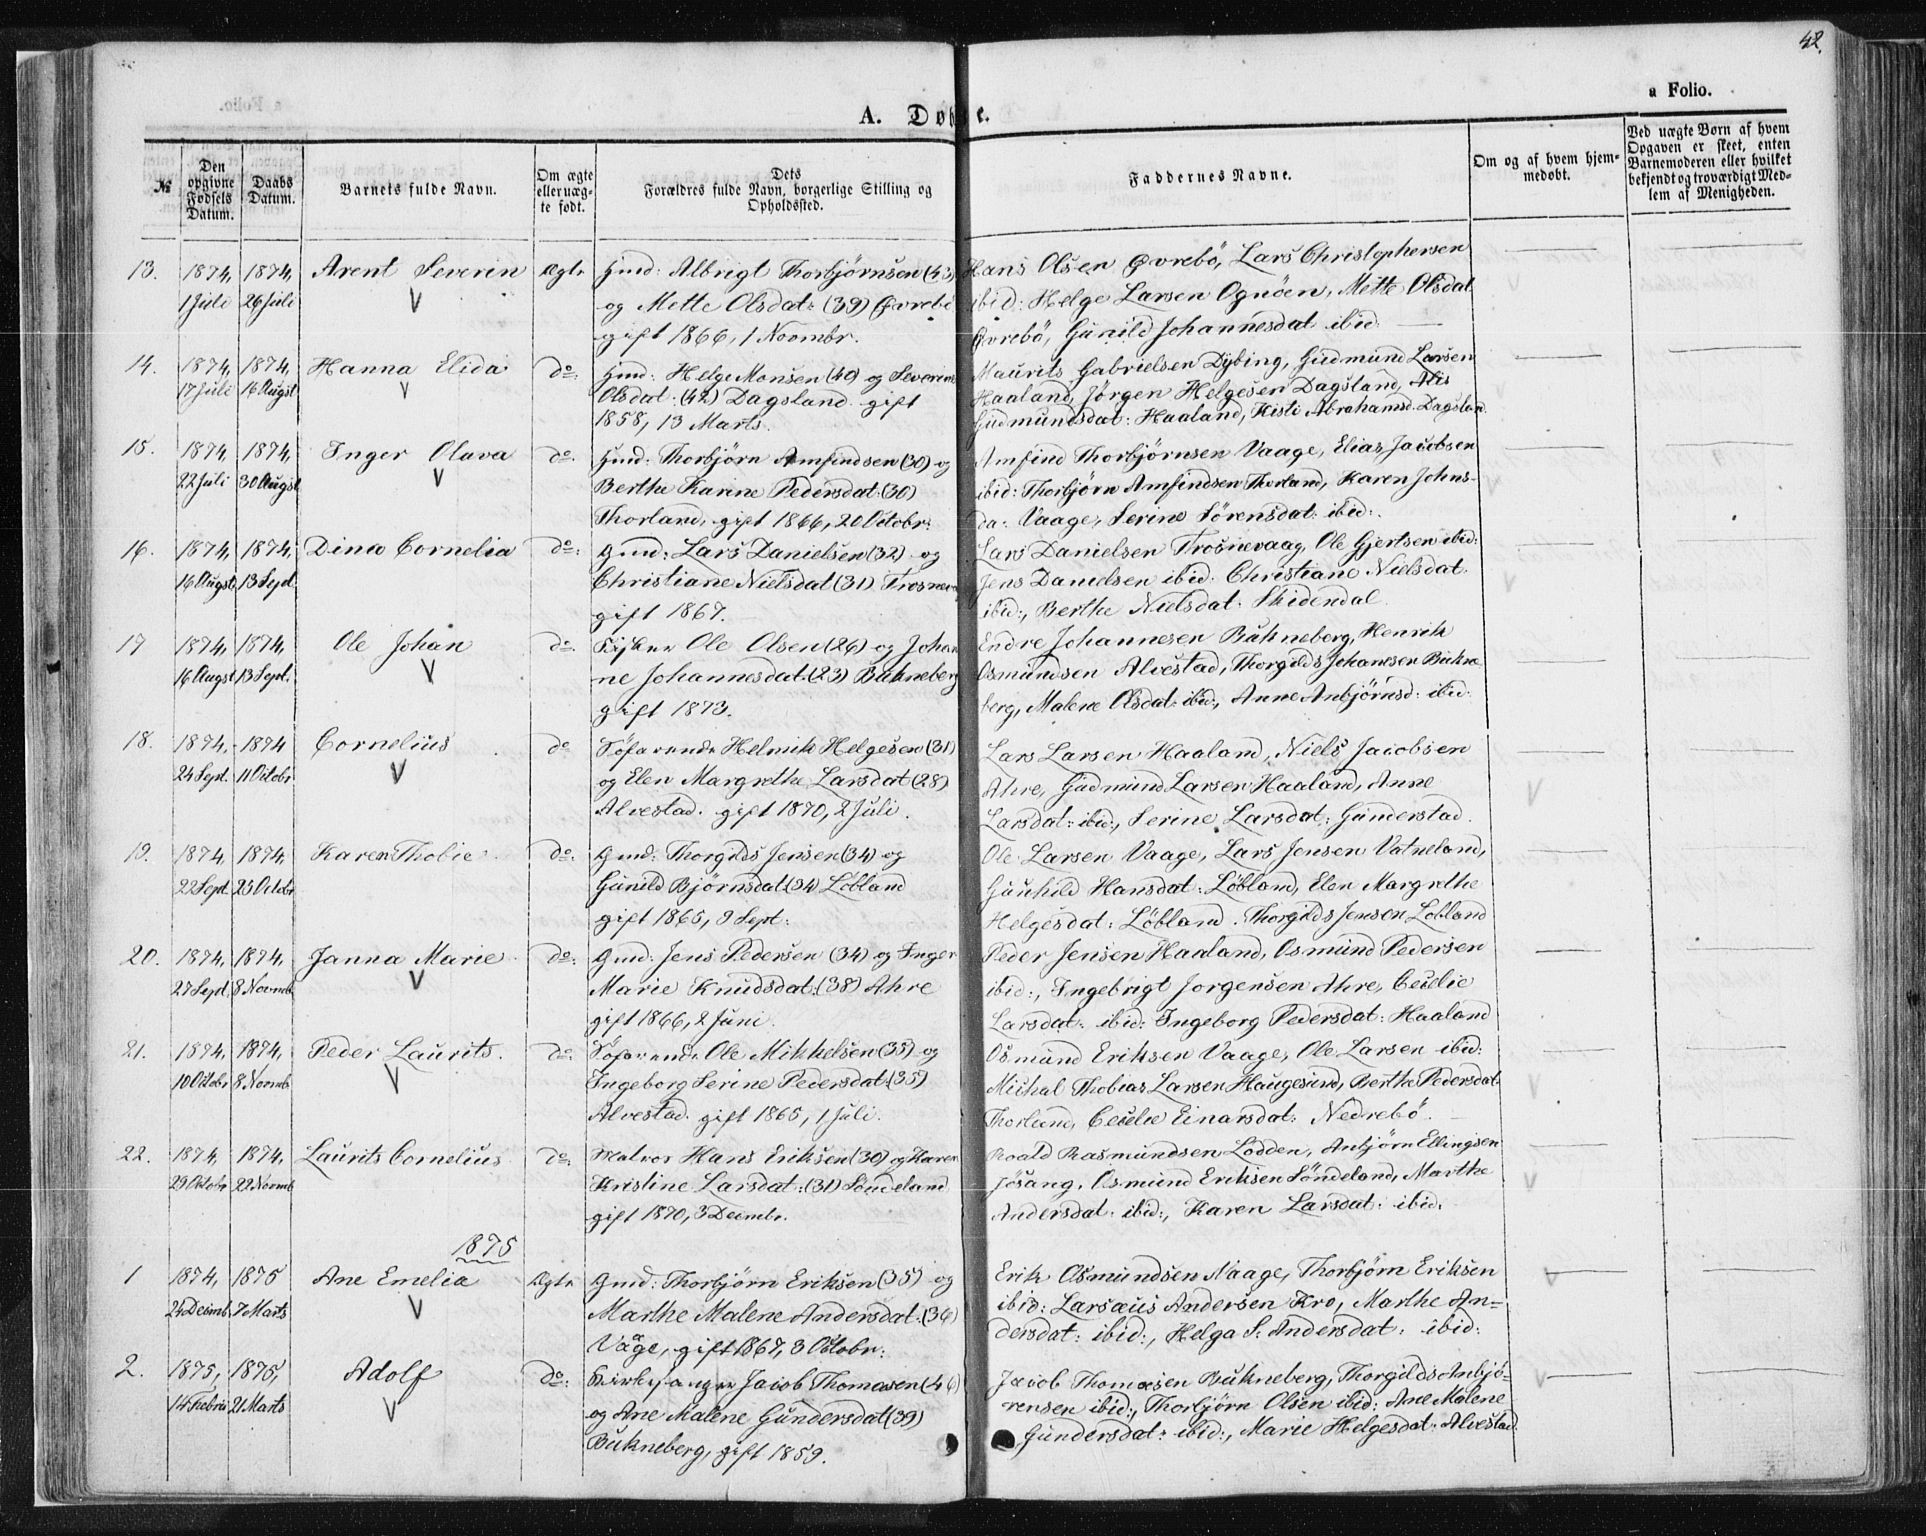 42.
a Folio.
A. Døbte.
№
Den opgivne Fødsels Datum.
Daabs Datum.
Barnets fulde Navn.
Om ægte eller uægte født.
Dets Forældres fulde Navn, borgerlige Stilling og Opholdssted.
Faddernes Navne.
Om og af hvem hjemmedøbt.
Ved uægte Børn af hvem Opgaven er skeet, enten Barnemoderen eller hvilket bekjendt og troværdigt Medlem af Menigheden.
13. 1874, 1874, Arent Severin Ægte Gmd: Albrigt Thorbjørnsen (43) Hans Olsen Øvrebö, Lars Christophersen
1 Juli 26 Juli og Mette Olsdat: (39) Øvrebö ibid: Helge Larsen Ognöen, Mette Olsdat
gift 1866, 1 Novmbr. Øvrebö, Gunild Johannesdat ibid:
14. 1874, 1874, Hanna Elida do: Gmd: Helge Monsen (40) og Severine Maurits Gabrielsen Dybing, Gudmund Larsen
17 Juli 16 Augst Olsdat. (42) Dagsland. gift Haaland, Jørgen Helgesen Dagsland, Alis
1858, 13 Marts. Gudmundsdat: Haaland, Kisti Abrahamsd. Dagsland
15. 1874, 1874, Inger Olava do. Gmd: Thorbjörn Amfindsen (30) og Amfind Thorbjørnsen Vaage, Elias Jacobsen
22 Juli 30 Augst Berthe Karine Pedersdat: (30) ibid: Thorbjörn Amfindsen Thorland, Karen Johns-
Thorland, gift 1866, 20 Octobr: da: Vaage, Serine Sörensdat: ibid:
16. 1874, 1874, Dina Cornelia do: Gmd: Lars Danielsen (32) og Lars Danielsen Trosnevaag, Ole Gjertsen ibid:
16 Augst 13 Sept. Christiane Nielsdat (31) Trosneva Jens Danielsen ibid. Christiane Nielsdat.
gift 1867. ibid:, Berthe Nielsdat. Skidendal
17 1874, 1874, Ole Johan do. Ole Olsen (26) og Johan Endre Johannesen Bukneberg, Henrik
16 Augst 13 Sept. ne Johannesdat (23) Bukneberg Osmundsen Alvestad, Thorgilds Johansen Bukne
gift 1873. berg, Malene Olsdat: ibid:, Anne Anbjörnsd: ibid:
18. 1874, 1874 Cornelius do Söfarende Helmik Helgesen (31) Lars Larsen Haaland, Niels Jacobsen
24 Sept. 11 Octobr og Elen Margrethe Larsdat (28) Ahre, Gudmund Larsen Haaland, Anne
Alvestad. gift 1870, 2 Juli. Larsdat: ibid:, Serine Larsdat: Gunderstad.
19. 1874, 1874, Karen Thobie do: Gmd: Thorgilds Jensen (34) og Ole Larsen Vaage, Lars Jensen Vatneland,
22 Sept. 25 Octobr Gunild Björnsdat (34) Löbland Gunhild Hansdat: Löbland, Elen Margrethe
gift 1865, 9 Sept: Helgesdat: Löbland. Thorgilds Jensen Lobland
20. 1874, 1874, Janna Marie do: Gmd: Jens Pedersen (34) og Inger Peder Jensen Haaland, Osmund Pedersen
27 Sept. 8 Novmb Marie Knudsdat: (38) Ahre ibid:, Ingebrigt Jorgensen Ahre, Cecelie
gift 1866, 2 Juni. Larsdat: ibid: Ingeborg Pedersdat: Haaland
21. 1874, 1874, Peder Laurits. do: Söfarende Ole Mikkelsen (35) og Osmund Eriksen Vaage, Ole Larsen ibid:
10 Octobr 8 Novmb Ingeborg Serine Pedersdat: (35) Michal Thobias Larsen Haugesund, Berthe Pedersdat.
Alvestad. gift 1865, 1 Juli. Thorland, Cecelie Einarsdat: Nedrebö.
22. 1874, 1874, Laurits Cornelius do: Matros Hans Eriksen (30) og Karen Roald Rasmundsen Lodden, Anbjörn Ellingsen
29 Octobr 22 Novmb Kristine Larsdat: (31) Söndeland Jösang, Osmund Eriksen Söndeland, Marthe
gift 1870, 3 Decmbr. Andersdat: ibid:, Karen Larsdat: ibid:
1875
1 1874, 1875 Ane Emelia Ægte Gmd: Thorbjörn Eriksen (35) og Erik Osmundsen Vaage, Thorbjörn Eriksen
24 Decmb. 7 Marts Marthe Malene Andersdat: (36) ibid: Larsæus Andersen Kro, Marthe An=
Våge, gift 1867, 3 Octobr: dersdat: ibid:, Helga S: Andersdat: ibid:
2. 1875, 1875, Adolf do: Kirkesanger Jacob Thomasen (46) Jacob Thomasen Bukneberg, Thorgilds Anbjö-
14 Febru 21 Marts og Ane Malene Gundersdat (39) rensen ibid:, Thorbjörn Olsen ibid: Ane Malene
Bukneberg, gift 1859. Gundersdat: ibid:, Marie Helgesdat: Alvestad.